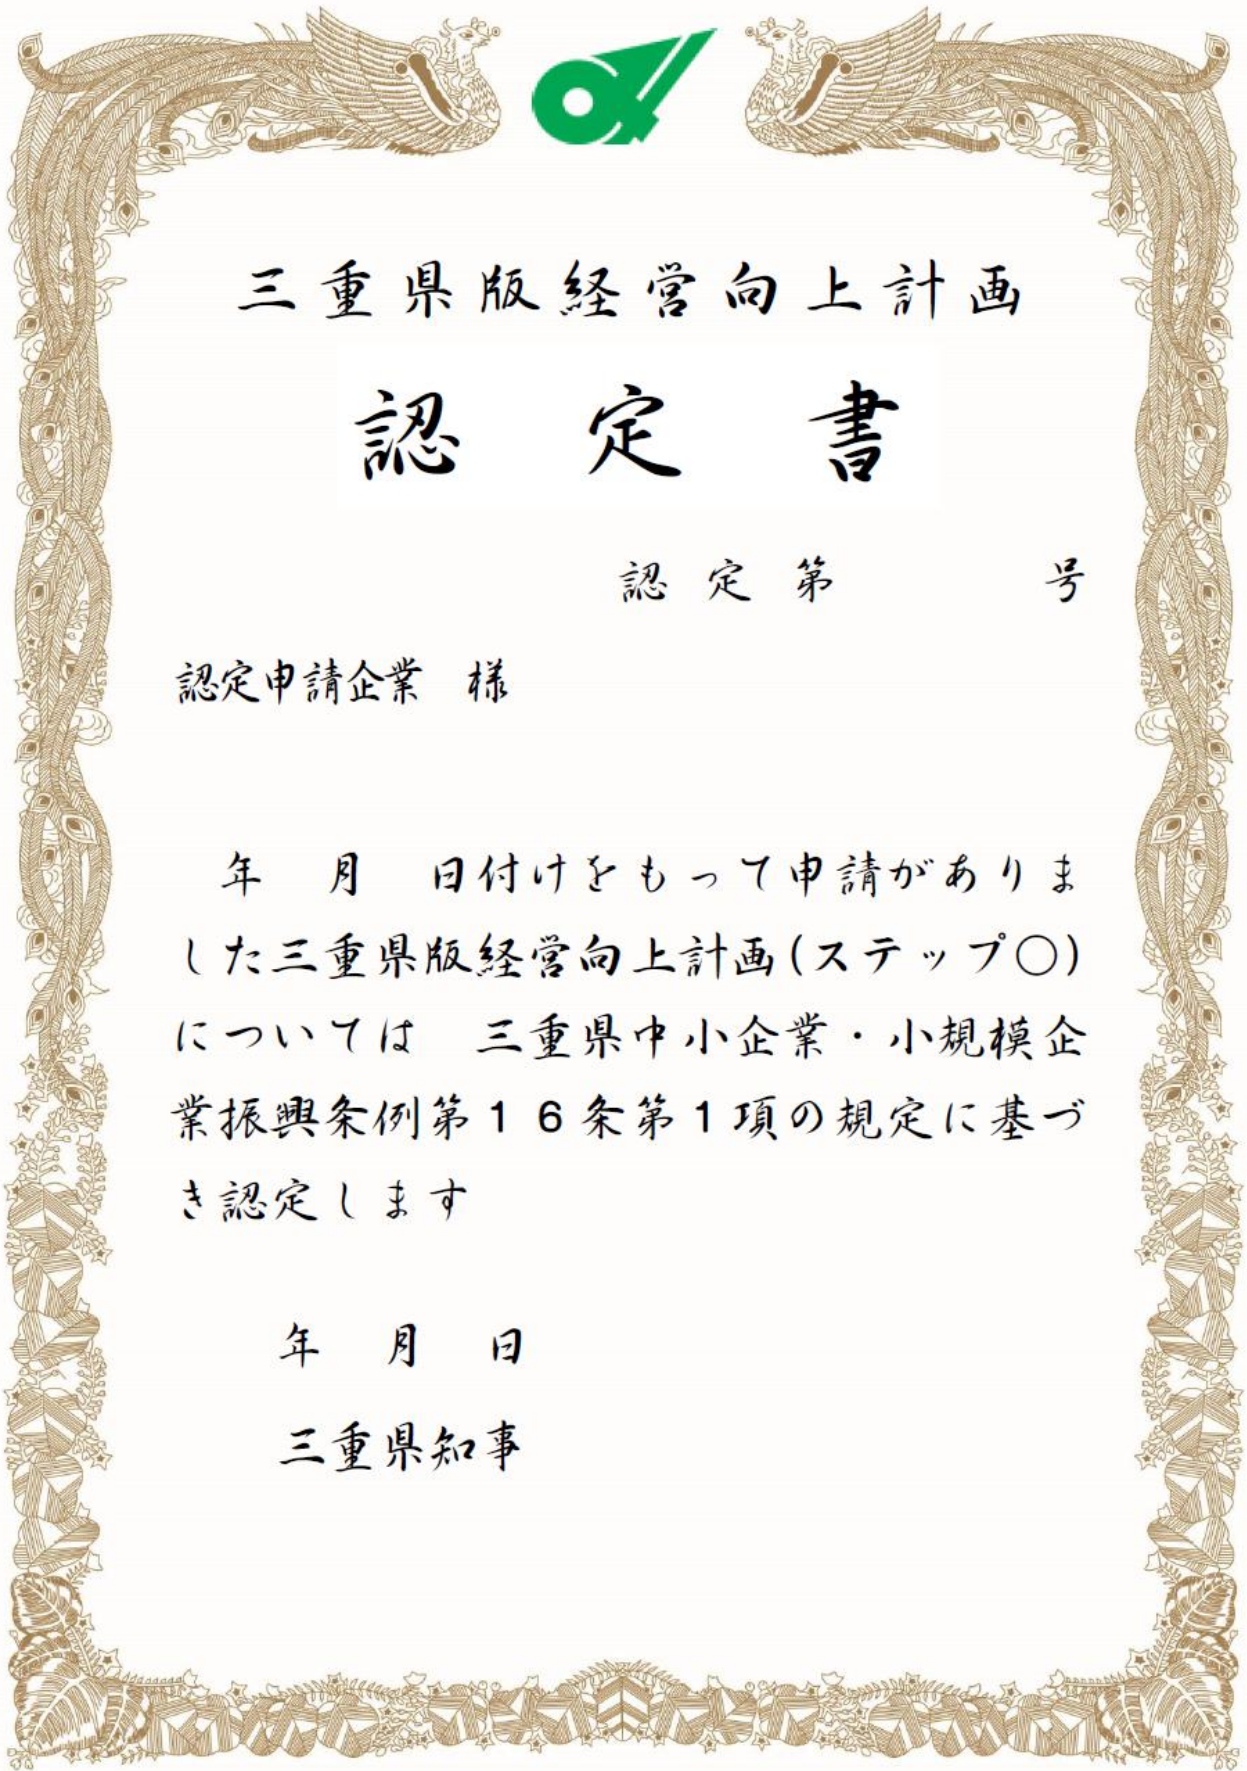 三重県版経営向上計画
認　定　書
認定第　　　　号
認定申請企業　様
年　月　日付けをもって申請がありま
した三重県版経営向上計画(ステップ〇)
については　三重県中小企業・小規模企
業振興条例第１６条第１項の規定に基づ
き認定します
年　月　日
三重県知事